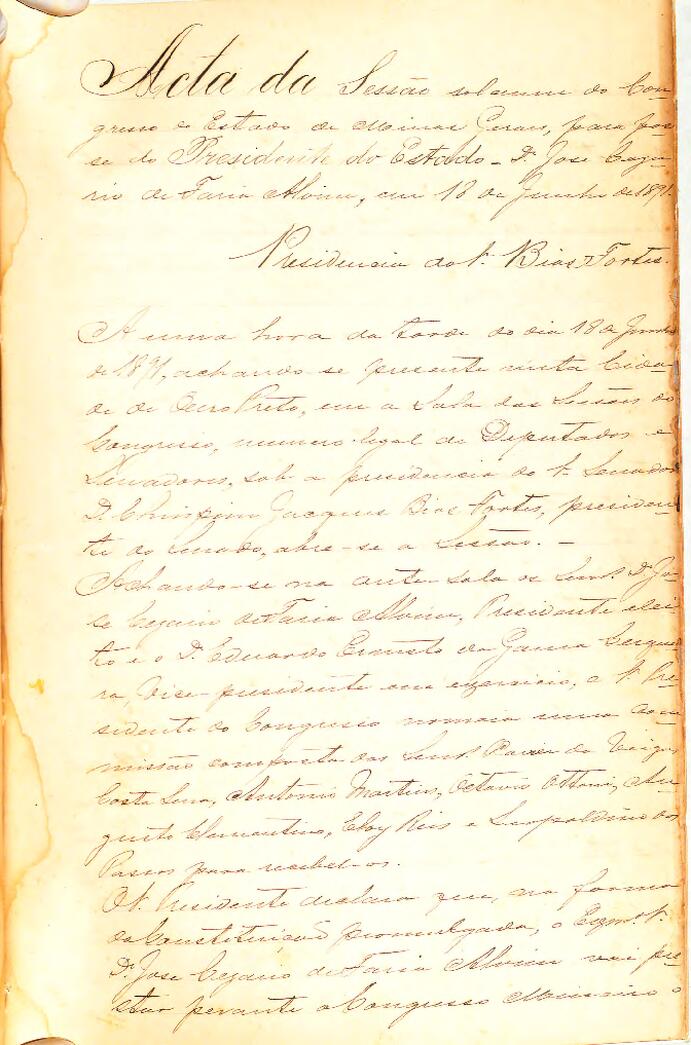 Acta da Sessão solemne do Con-
gresso do Estado de Minas Geraes, para pos-
se do Presidente do Estado - Dr. José Cesa-
rio de Faria Alvim, em 18 de Junho de 1891.
Presidencia do Sr. Bias Fortes.
A uma hora da tarde do dia 18 de Junho
de 1891, achando-se presente nesta Cida-
de de Ouro Preto, em a Sala das Sessões do
Congresso, numero legal de Deputados e
Senadores, sob a presidencia do Sr. Senador
Dr. Chrispim Jacques Bias Fortes, presiden-
te do Senado, abre-se a Sessão. -
Achando-se na ante sala os Senrs. Dr. Jo-
se Cesario de Faria Alvim, Presidente elei-
to e o Dr. Eduardo Ernesto da Gama Cerquei-
ra, Vice-presidente em exercicio, o Sr. Pre-
sidente do Congresso nomeia uma com-
missão composta dos Senrs. da Veiga
Costa Sena, Antonio Martins, Octavio Ottoni, Au-
gusto Clementino, Eloy Reis e Leopoldino dos
Passos para recebel-os.
O Sr. Presidente declara que, na forma
da Constituição promulgada, o Exmo. Sr.
Dr. José Cesario de Faria Alvim vai pre-
star perante o Congresso Mineiro o